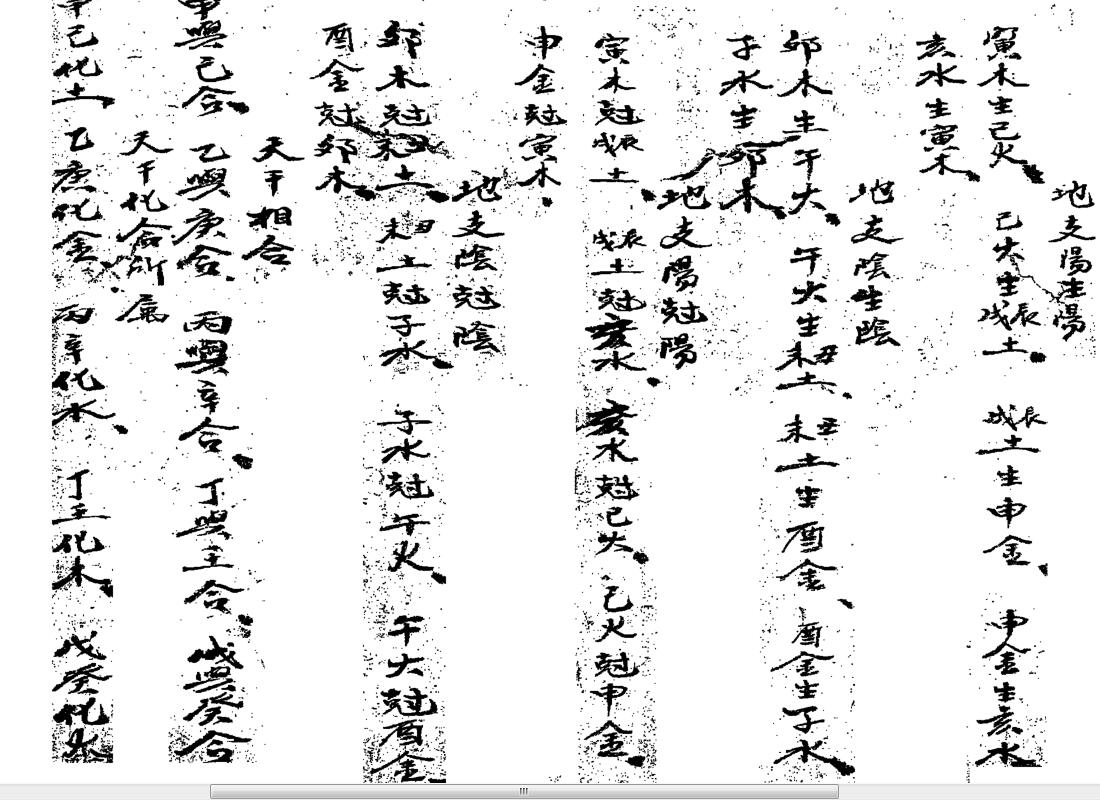 地支陽生陽
寅木生己火 己火生戌辰土 戌辰土生申金 申金生亥水
亥水生寅木
地支陰生陰
卯木生午火 午火生未丑土 未丑土生酉金 酉金生子水
子水生卯木
地支陽尅陽
寅木尅戌辰土 戌辰土尅亥水 亥水尅己火 己火尅申金
申金尅寅木
地支陰尅陰
卯木尅未丑土 未丑土尅子水 子水尅午火 午火尅酉金
酉金尅卯木
天干相合
甲與己合 乙與庚合 丙與辛合 丁與壬合 戊與癸合
天干化合所属
甲己化土 乙庚化金 丙辛化水 丁壬化木 戊癸化火